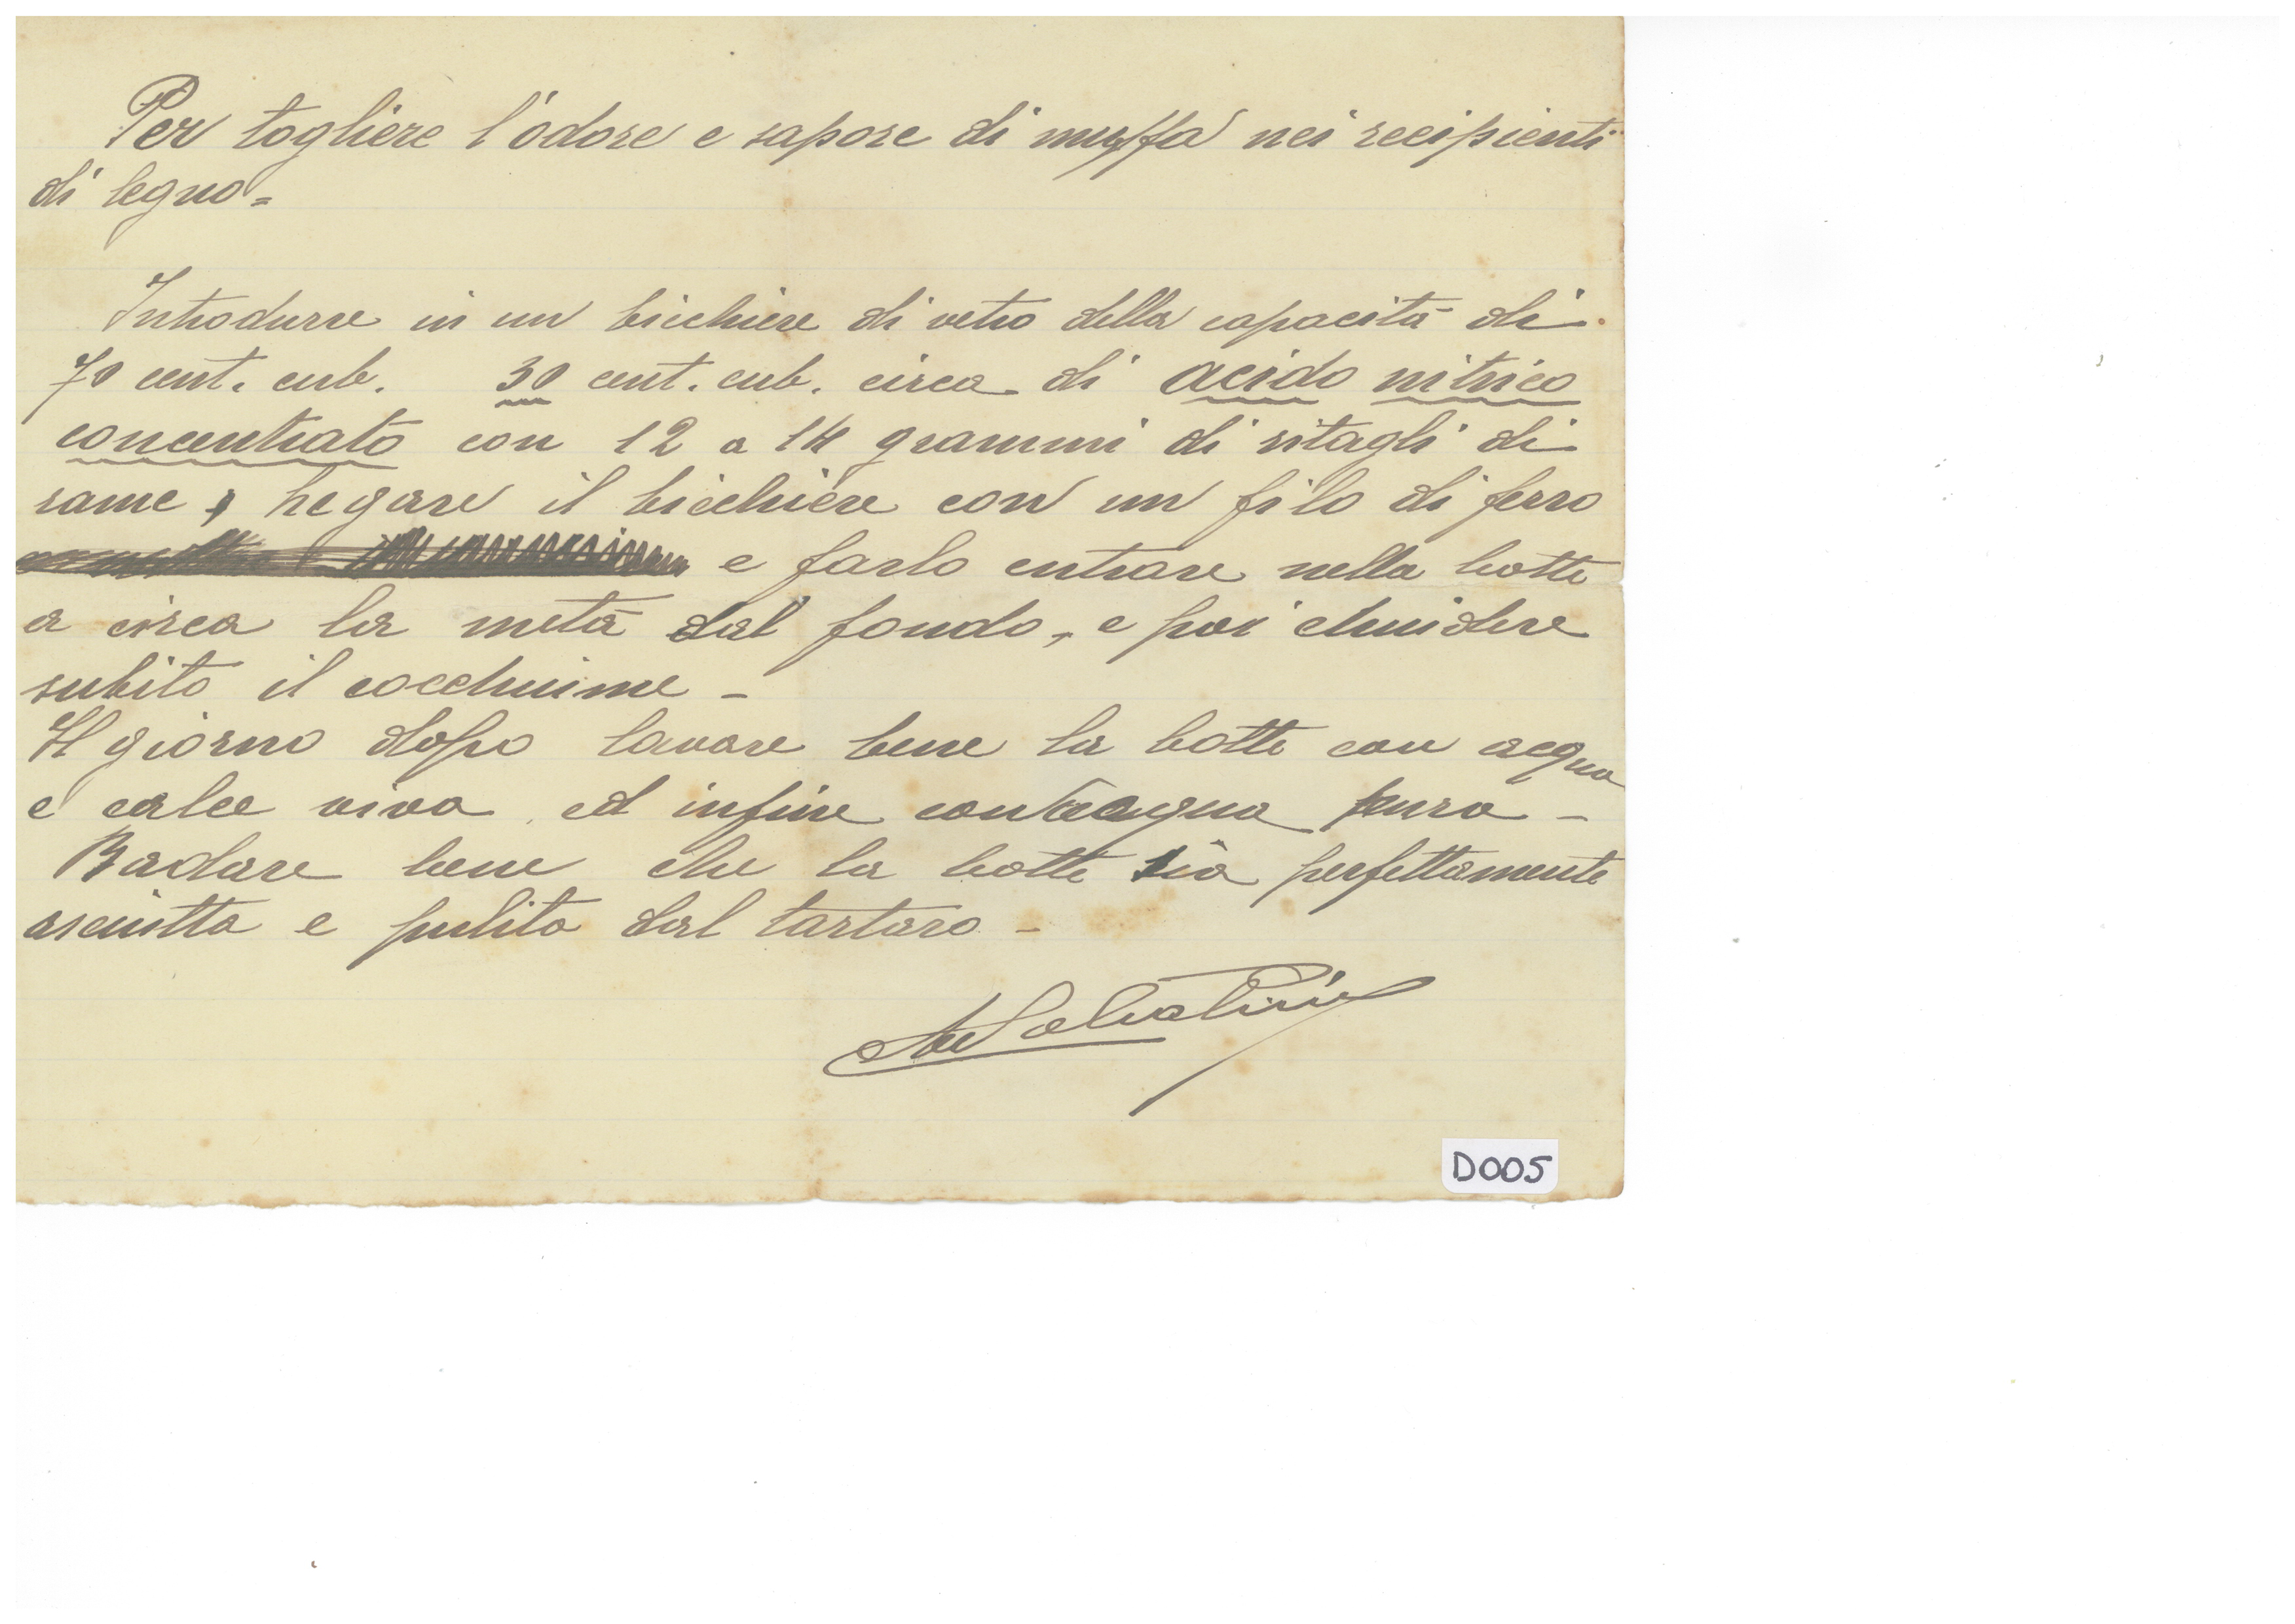 Per togliere l'odore e sapore di muffa nei recipienti
di legno=
Introdurre in un bicchiere di vetro della capacità di
70 cent. cub. 30 cent. cub. circa di acido nitrico
concentrato con 12 a 14 grammi di ritagli di
rame, legare il bicchiere con un filo di ferro
e farlo entrare nella botte
a circa la metà dal fondo, e poi chiudere
subito il cocchiume -
Il giorno dopo lavare bene la botte con acqua
e calce viva ed infine con acqua pura -
Badare bene che la botte sia perfettamente
asciutta e pulita dal tartaro -
D005